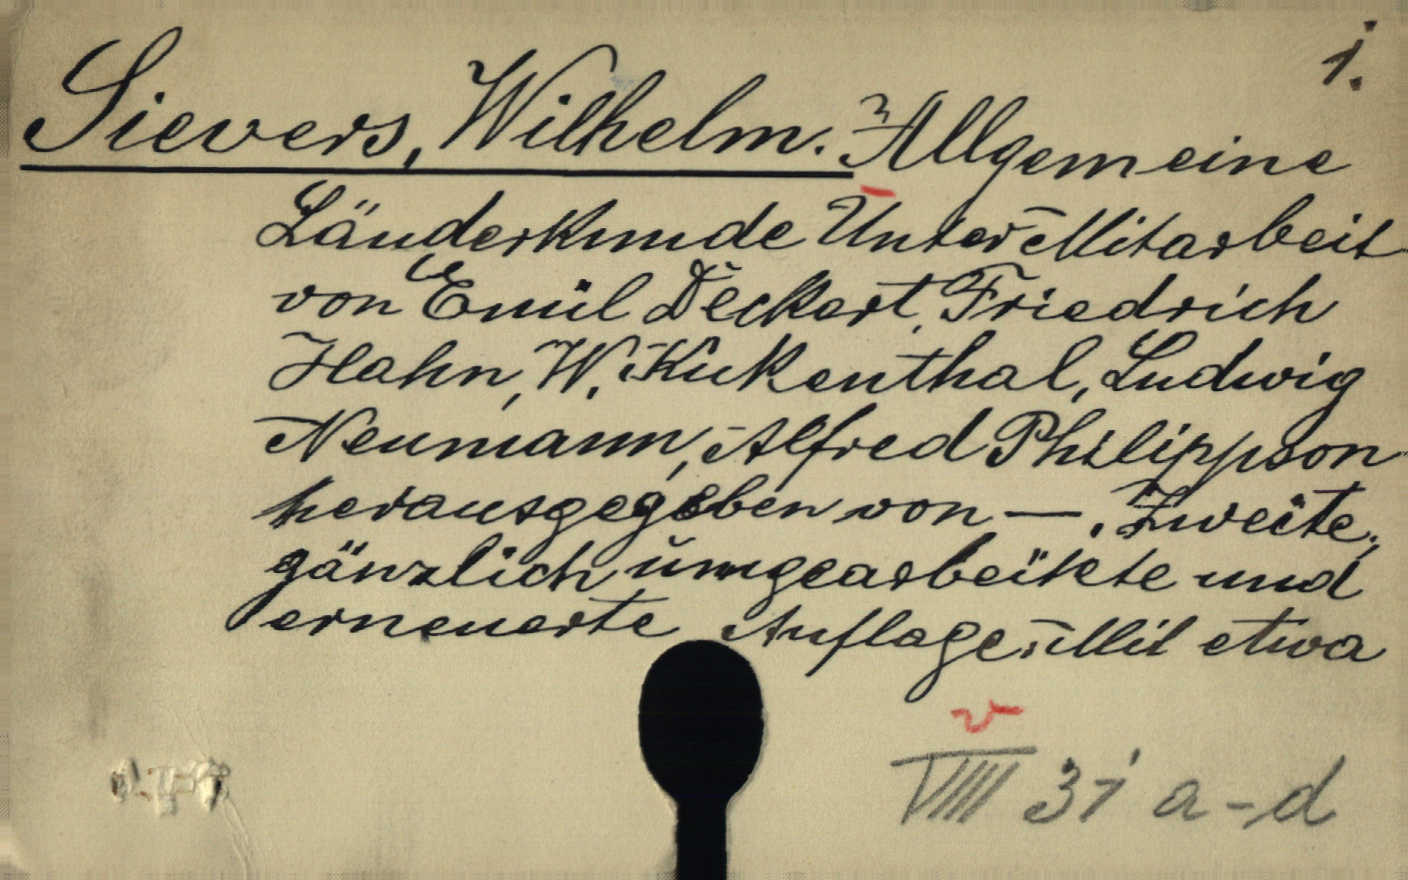 1.
Sievers, Wilhelm. Allgemeine
Länderkunde Unter Mitarbeit
von Emil Deckert, Friedrich
Hahn, W. Kükenthal, Ludwig
Neumann, Alfred Philippson
herausgegeben von —. Zweite,
gänzlich umgearbeitete und
erneuerte Auflage. Mit etwa
VIIII 31 a-d